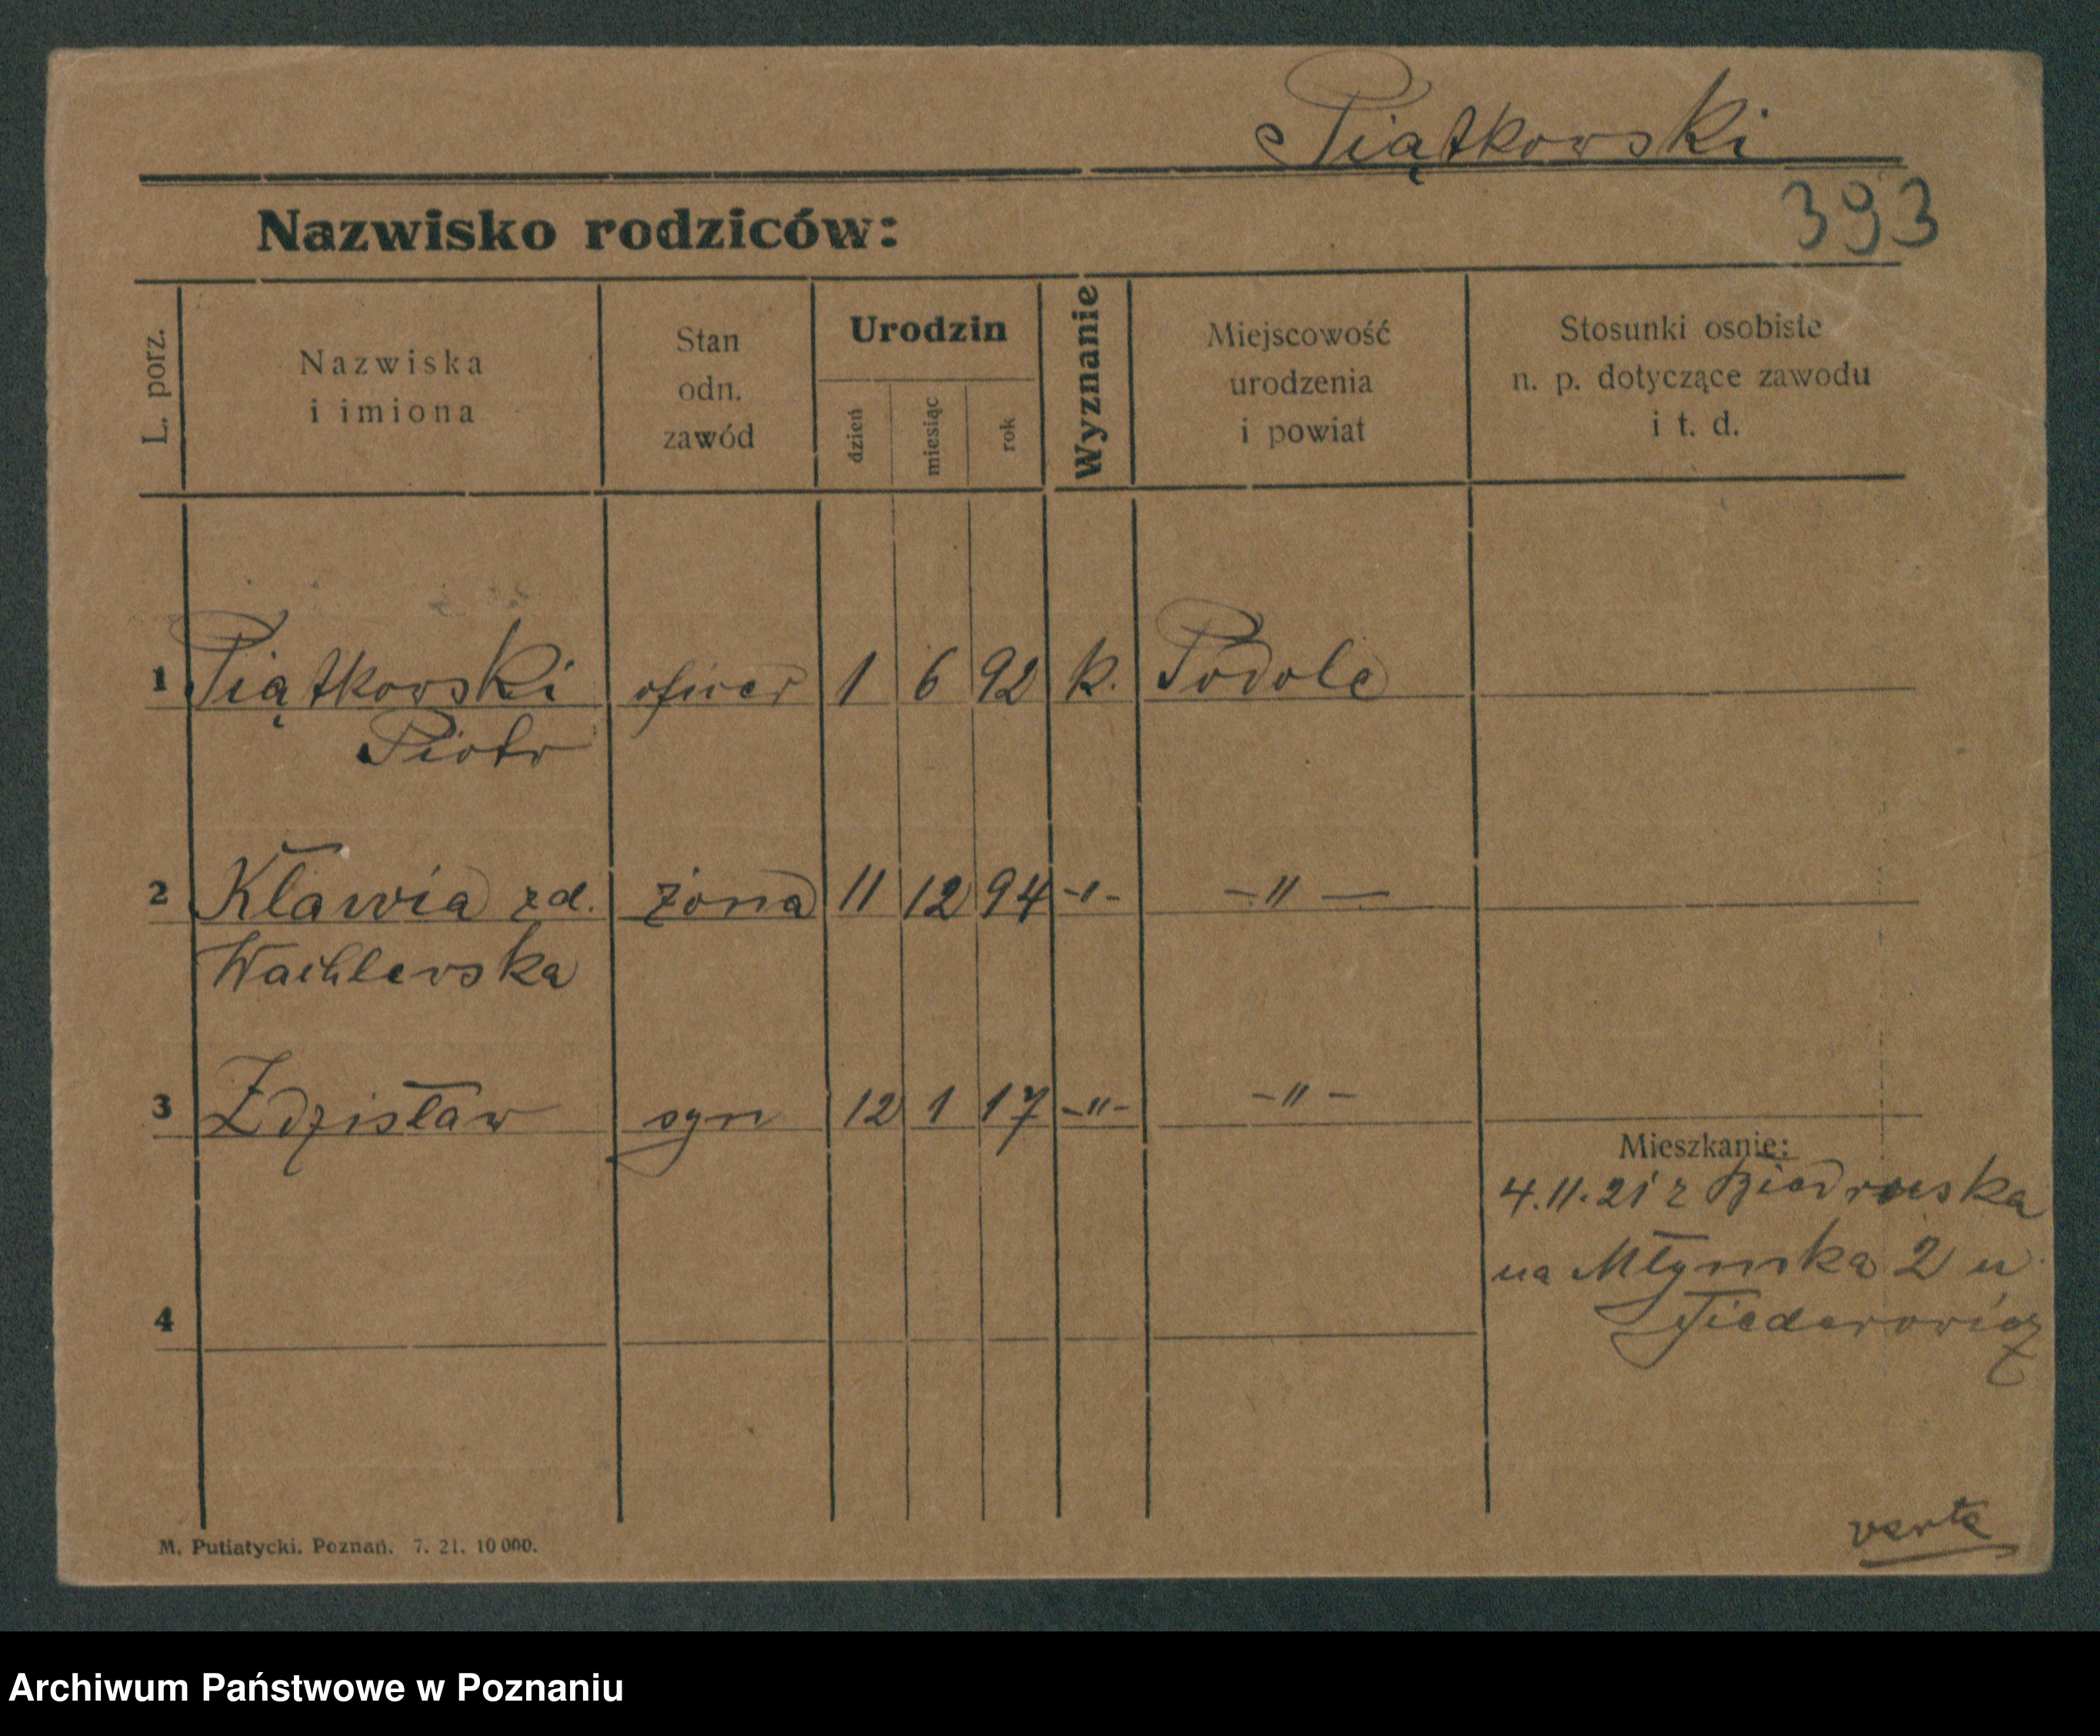 Piątkowski
393
Nazwisko rodziców:
L. porz.
Nazwiska
i imiona
Stan
odn.
zawód
Urodzin
dzień
miesiąc
rok
Wyznanie
Miejscowość
urodzenia
i powiat
Stosunki osobiste
n. p. dotyczące zawodu
i t. d.
1 Piątkowski oficer 1 6 92 k. Podole
Piotr
2 Kławia zd. żona 11 12 94 -"- -"-
Wachlewska
3 Zdzisław syn 12 1 17 -"- -"-
Mieszkanie:
4.11.21 z Biedruska
na Młyńską 2 u
4
M. Putiatycki. Poznań. 7. 21. 10000.
verte
Archiwum Państwowe w Poznaniu